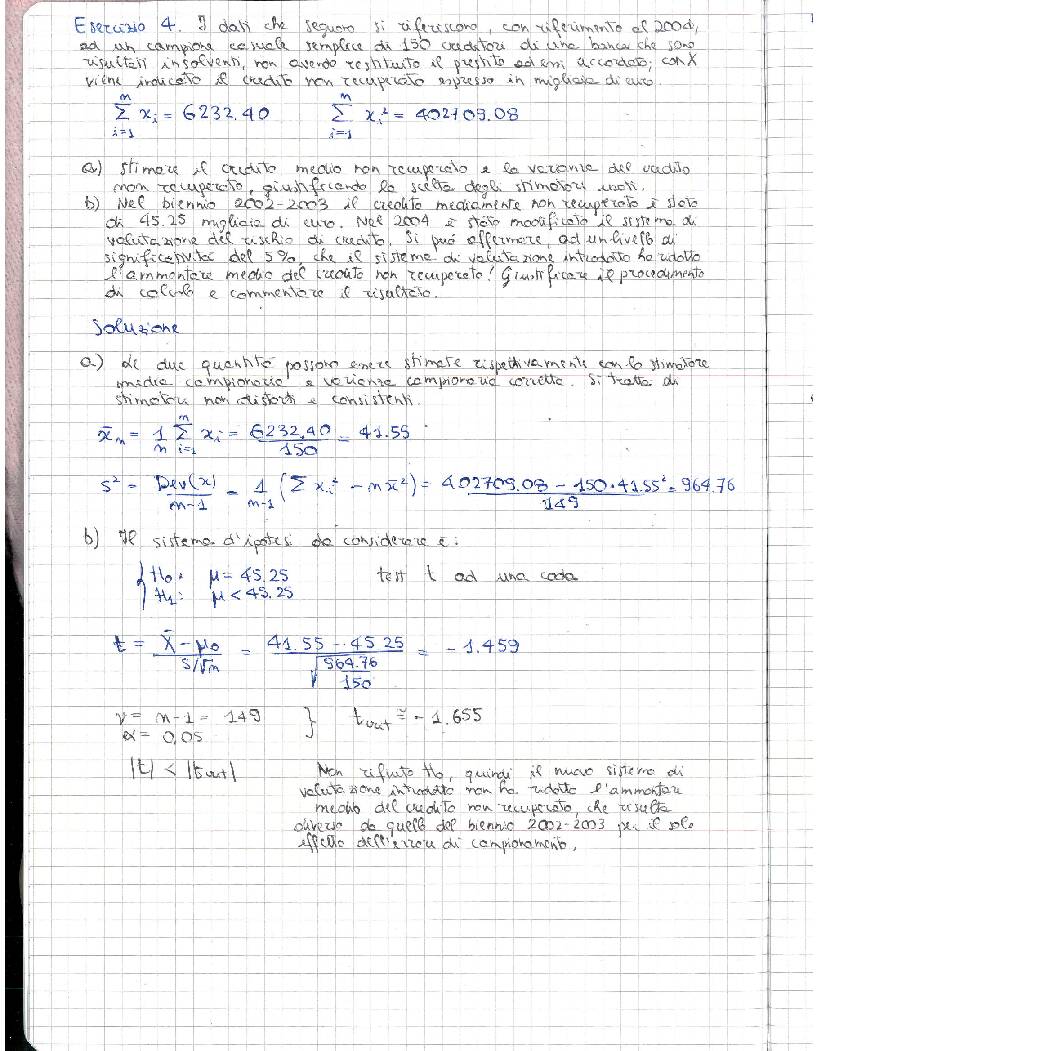 Esercizio 4. I dati che seguono si riferiscono, con riferimento al 2004,
ad un campione casuale semplice di 150 creditori di una banca che sono
risultati insolventi, non avendo restituito il prestito ad essi accordato; con X
viene indicato il credito non recuperato espresso in migliaia di euro.
n n
Σ xᵢ = 6232.40 Σ xᵢ² = 402709.08
i=1 i=1
a) Stimare il credito medio non recuperato e la varianza del credito
non recuperato, giustificando la scelta degli stimatori usati.
b) Nel biennio 2002-2003 il credito mediamente non recuperato è stato
di 45.25 migliaia di euro. Nel 2004 è stato modificato il sistema di
valutazione del rischio di credito. Si può affermare, ad un livello di
significatività del 5%, che il sistema di valutazione introdotto ha ridotto
l'ammontare medio del credito non recuperato? Giustificare il procedimento
di calcolo e commentare il risultato.
Soluzione
a) Le due quantità possono essere stimate rispettivamente con lo stimatore
media campionaria e varianza campionaria corretta. Si tratta di
stimatori non distorti e consistenti.
x̄ₙ = 1/n Σ xᵢ = 6232,40/150 = 41.55
s² = Dev(x)/n-1 = 1/n-1 (Σ xᵢ² - n x̄²) = 402709.08 - 150·41.55²/149 = 964.76
b) Il sistema d'ipotesi da considerare è:
H₀: μ = 45.25 test t ad una coda
H₁: μ < 45.25
t = X̄ - μ₀ / S/√n = 41.55 - 45.25 / √964.76/150 = -1.459
ν = n-1 = 149 } t crit ≅ -1.655
α = 0,05
|t| < |t crit| Non rifiuto H₀, quindi il nuovo sistema di
valutazione introdotto non ha ridotto l'ammontare
medio del credito non recuperato, che risulta
diverso da quello del biennio 2002-2003 per il solo
effetto dell'errore di campionamento.